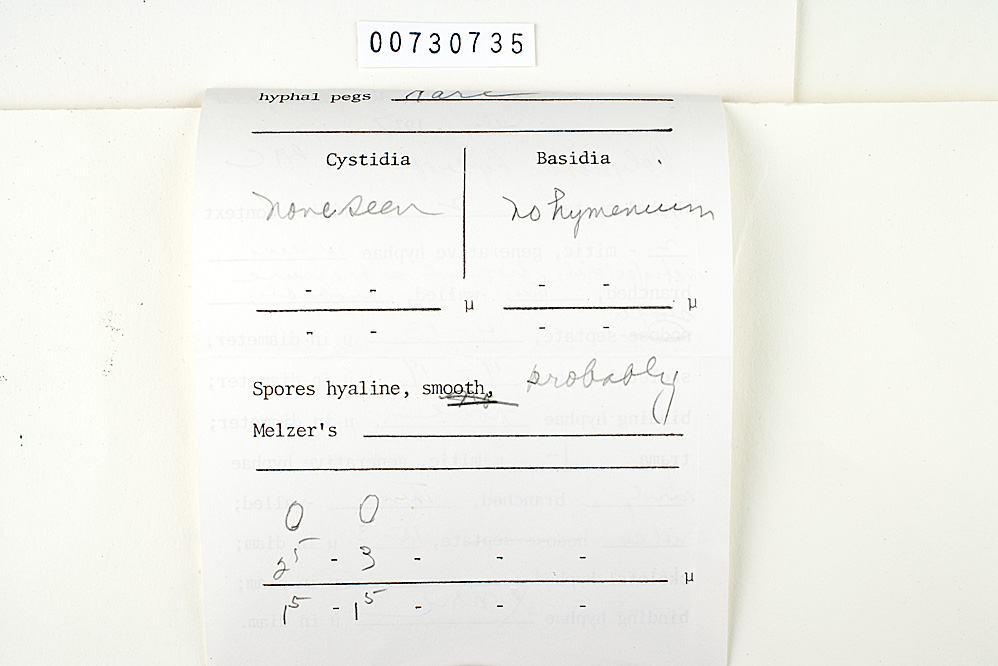 00730735
hyphal pegs rare
Cystidia Basidia
none seen no hymenium
- - - -
µ µ
- - - -
Spores hyaline, smooth, probably
Melzer's
0 0
2⁵ - 3 - - -
µ
1⁵ - 1⁵ - - -